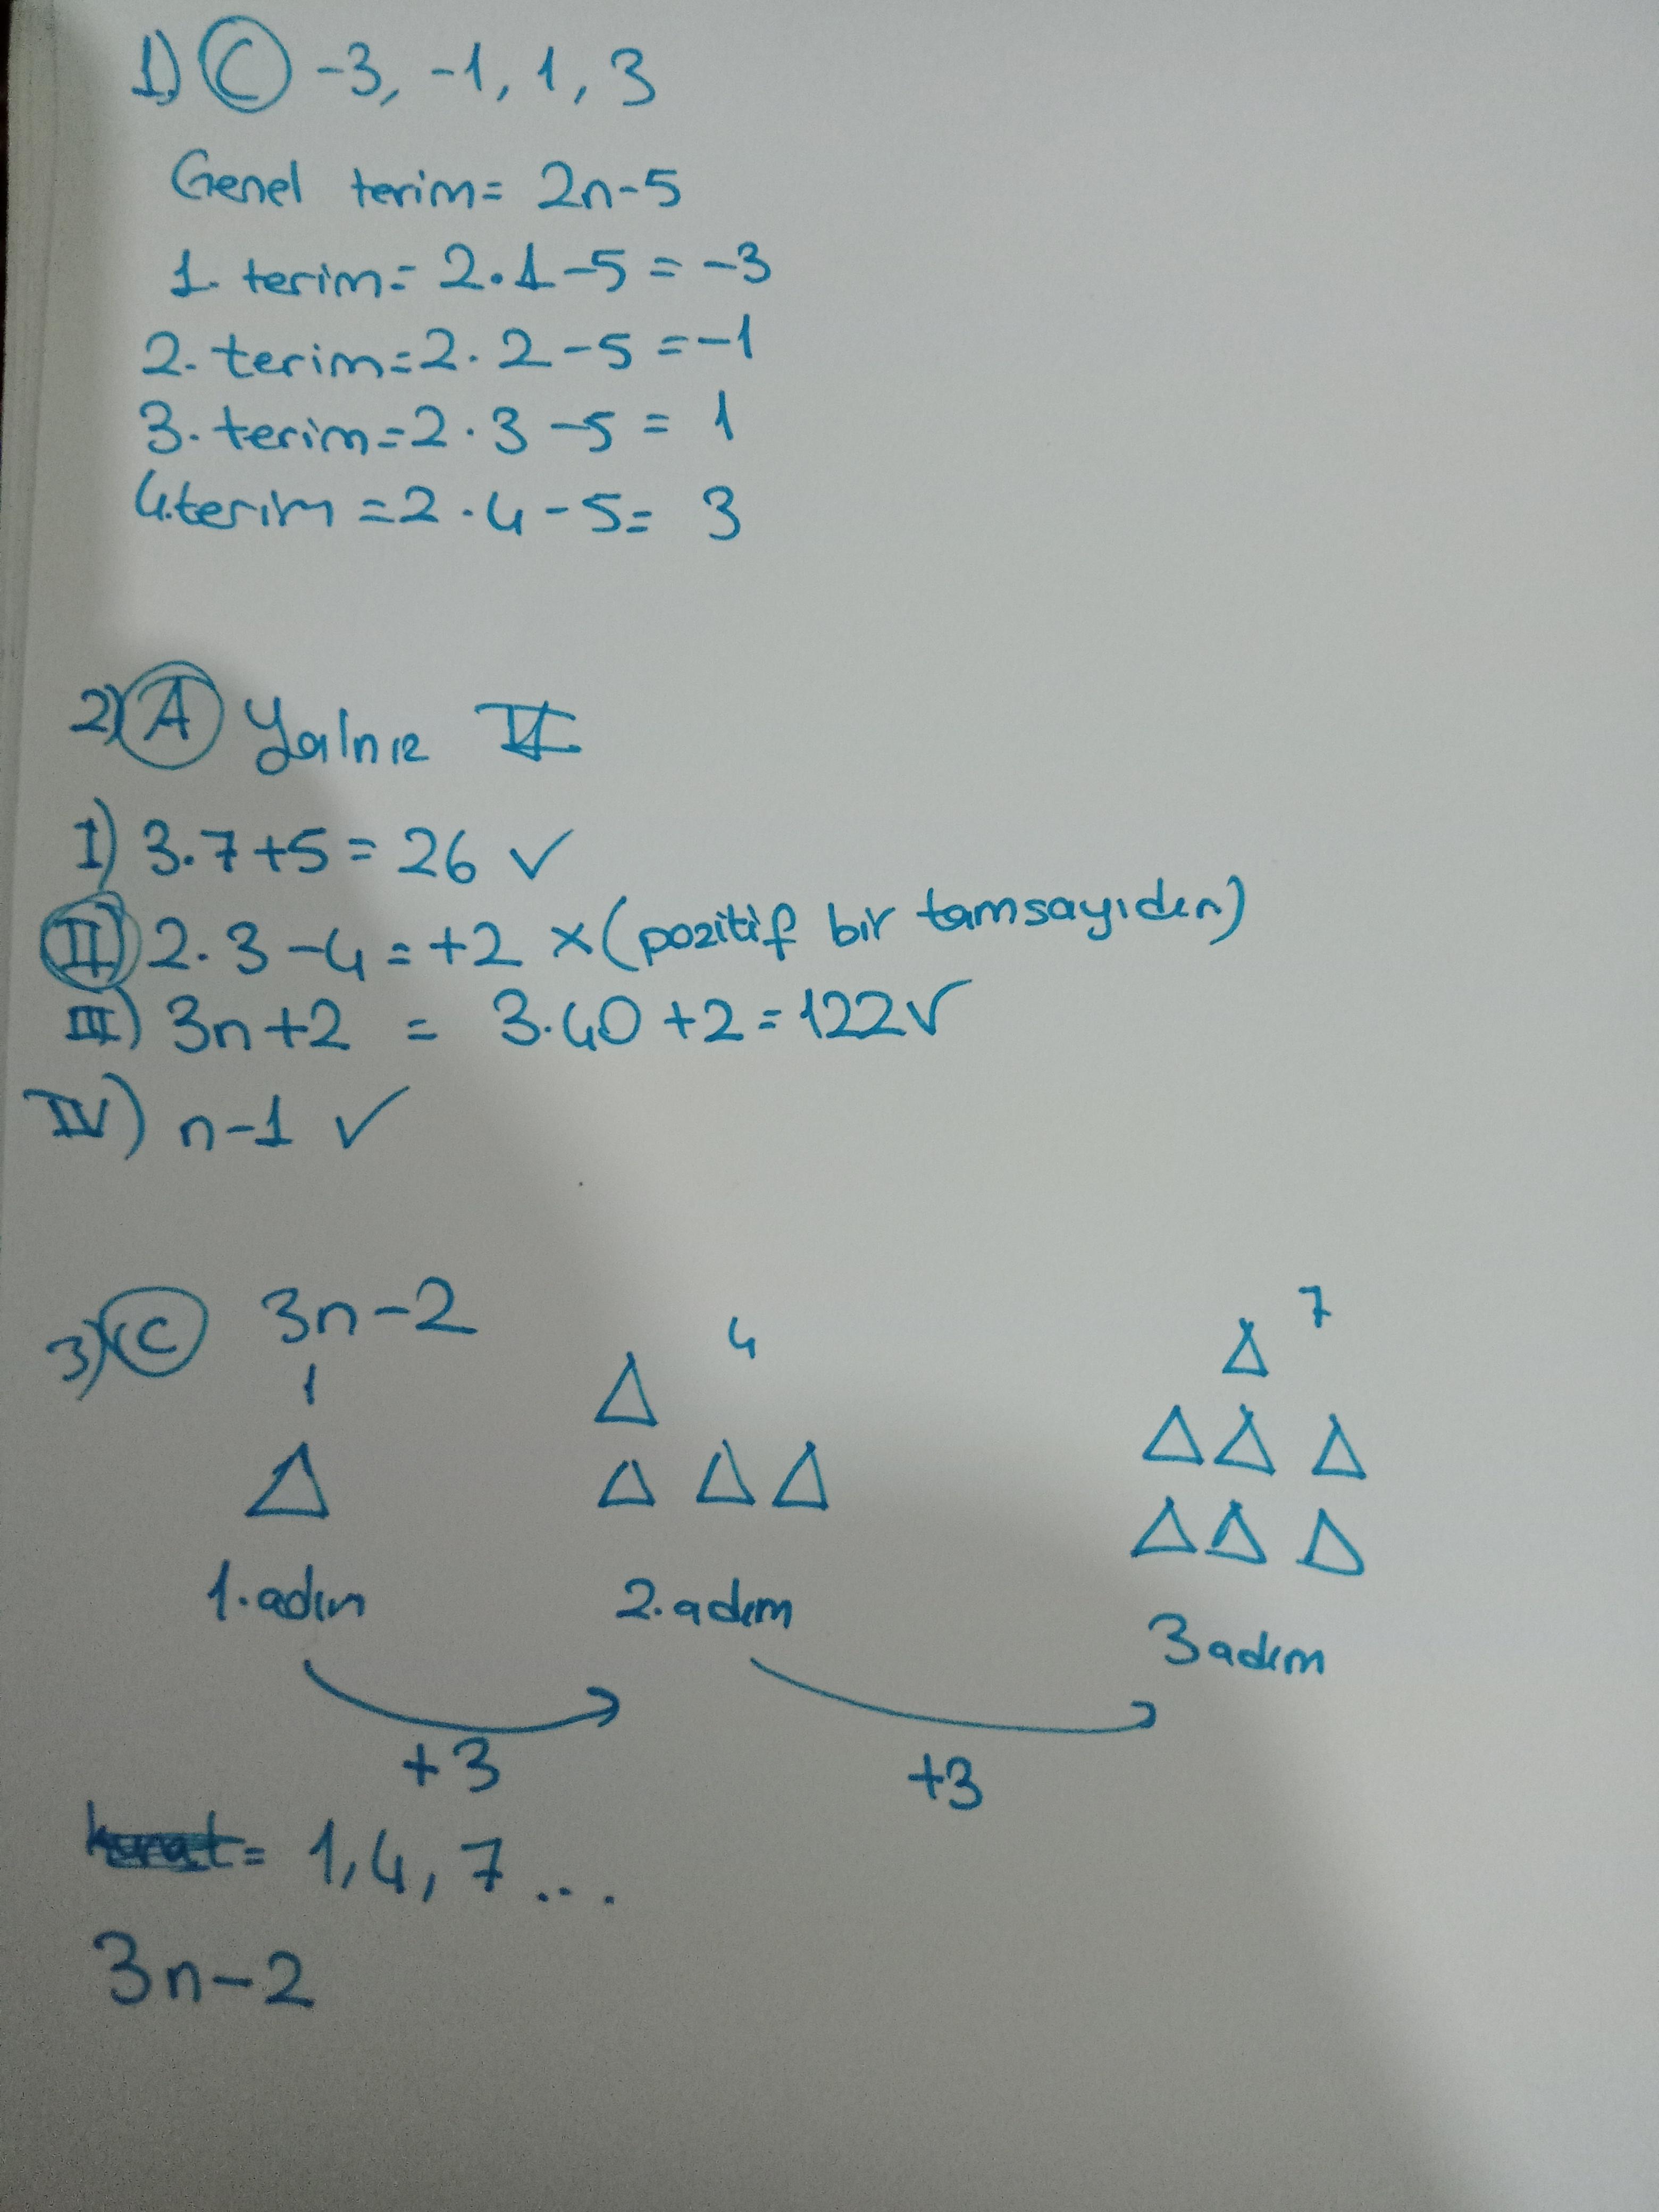 1) C -3, -1, 1, 3
Genel terim= 2n-5
1. terim= 2.1-5 = -3
2. terim=2.2-5 =-1
3. terim=2.3-5 = 1
4.terim =2.4-5= 3
2) A Yalnız II
I) 3.7+5= 26 ✓
II) 2.3-4=+2 x (pozitif bir tamsayıdır)
III) 3n+2 = 3.40+2=122✓
IV) n-1 ✓
3) C 3n-2
1 4 7
1.adım 2.adım 3adım
+3 +3
= 1,4,7...
3n-2